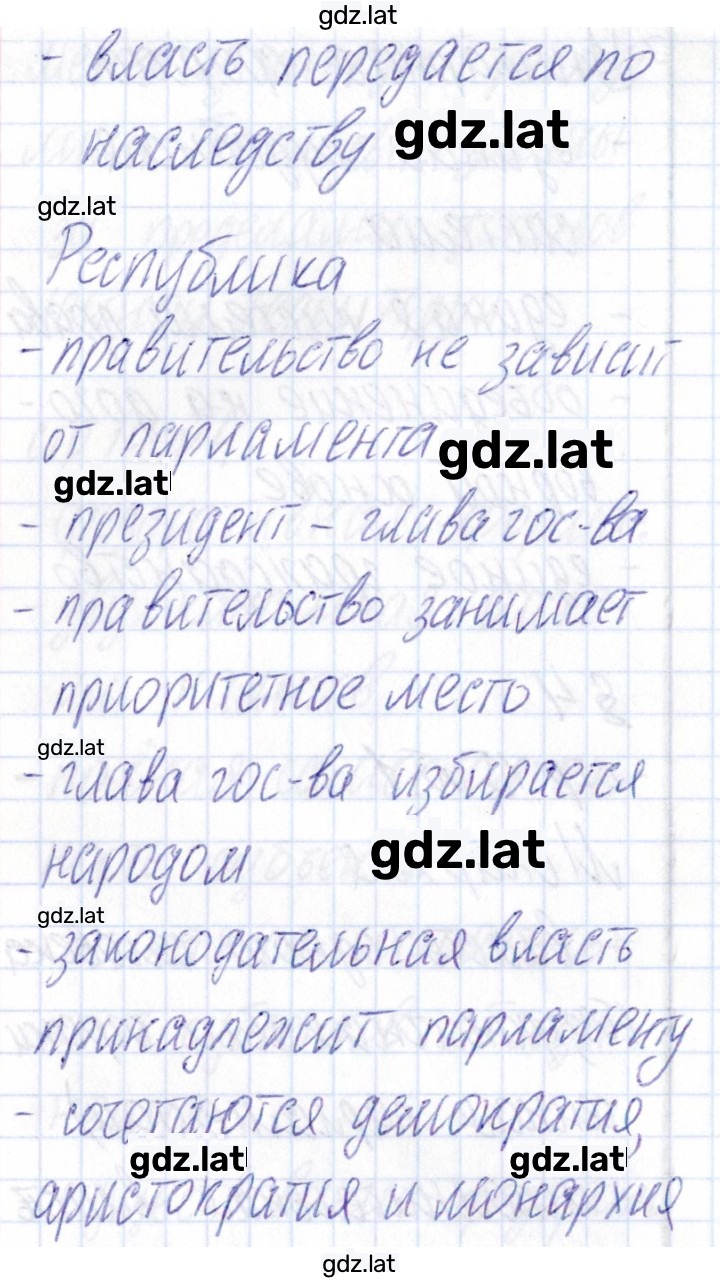 gdz.lat
- власть передается по
наследству gdz.lat
gdz.lat
Республика
- правительство не зависит
от парламента gdz.lat
gdz.lat
- президент - глава гос-ва
- правительство занимает
приоритетное место
gdz.lat
- глава гос-ва избирается
народом gdz.lat
gdz.lat
- законодательная власть
принадлежит парламенту
- сочетаются демократия,
gdz.lat gdz.lat
аристократия и монархия
gdz.lat